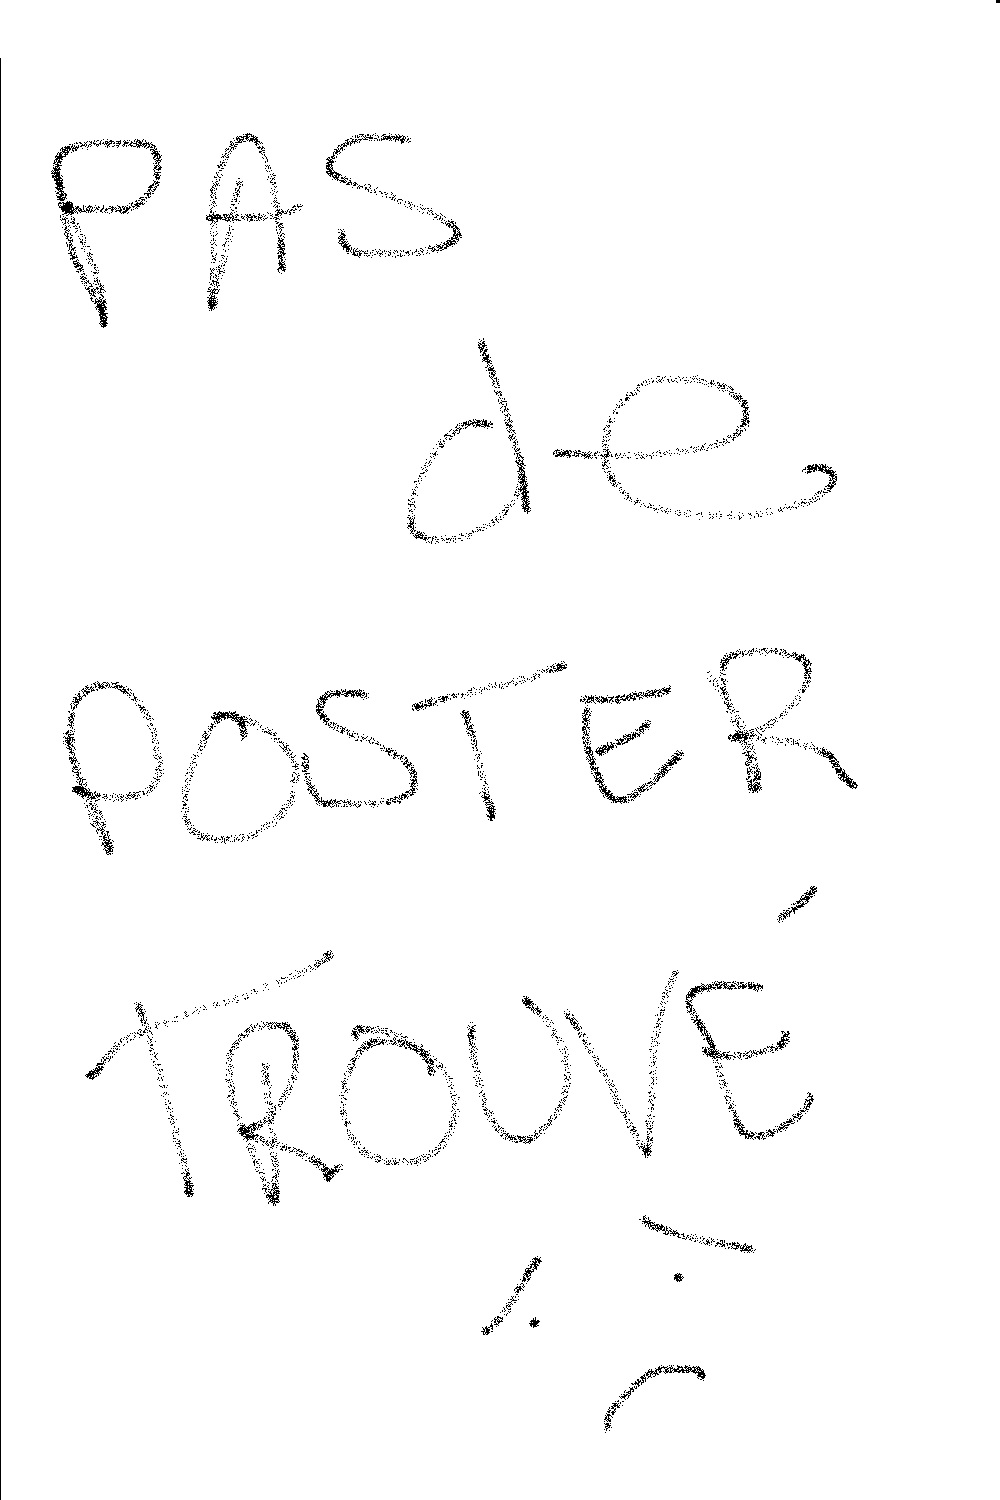 PAS
de
POSTER
TROUVÉ